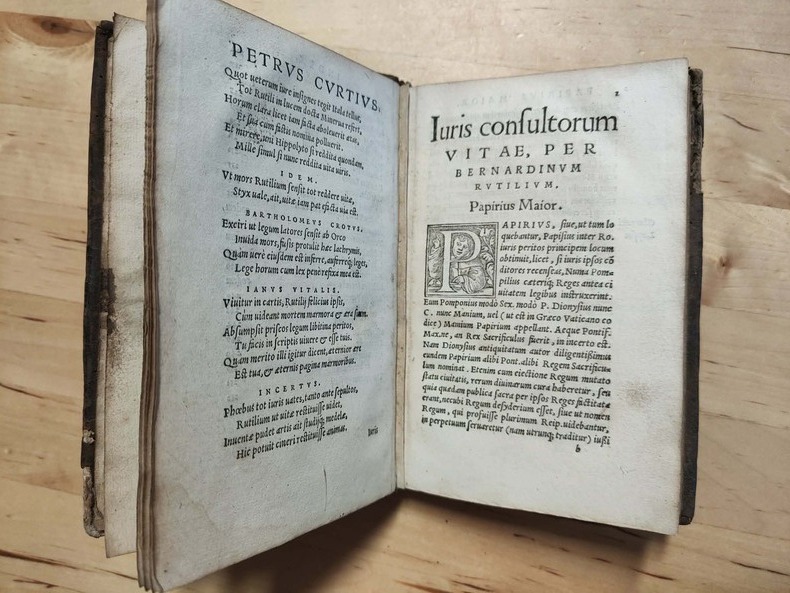 PETRVS CVRTIVS.
Quot ueterum iure insignes tegit Itala tellus,
Tot Rutili in lucem docta Minerua refert,
Horum clara licet iam facta aboleuerit ætas,
Et sua cum factis nomina polluerit.
Et mirere, uni Hippolyto si reddita quondam,
Mille simul si nunc reddita uita uiris.
IDEM.
Vt mors Rutilium sensit tot reddere uitæ,
Styx uale, ait, uitæ iam pat efacta uia est.
BARTHOLOMEVS CROTVS.
Exciri ut legum latores sensit ab Orco
Inuida mors, fusis protulit hæc lachrymis,
Quàm uerè eiusdem est inferre, auferreq; leges,
Lege horum cum lex penè refixa mea est.
IANVS VITALIS.
Viuitur in cartis, Rutilij felicius ipsis,
Cum uideant mortem marmora & æra suam.
Absumpsit priscos legum libitina peritos,
Tu facis in scriptis uiuere & esse tuis.
Quàm merito illi igitur dicent, æternior ære
Est tua, & æternis pagina marmoribus.
INCERTVS.
Phœbus tot iuris uates, tanto ante sepultos,
Rutilium ut uitæ restituisse uidet,
Inuentæ pudet artis ait studijq; medelæ,
Hic potuit cineri restituisse animas.
Iuris
1
Iuris consultorum
VITAE, PER
BERNARDINVM
RVTILIVM.
Papirius Maior.
PAPIRIVS, siue, ut tum lo
quebantur, Papisius inter Ro.
iuris peritos principem locum
obtinuit, licet, si iuris ipsos cõ
ditores recenseas, Numa Pom-
pilius cæteriq; Reges antea ci
uitatem legibus instruxerint.
Eum Pomponius modò Sex. modò P. Dionysius nunc
C. nunc Manium, uel (ut est in Græco Vaticano co
dice) Manium Papirium appellant. Aeque Pontif.
Max. ne, an Rex Sacrificulus fuerit, in incerto est.
Nam Dionysius antiquitatum autor diligentißimus
eundem Papirium alibi Pont. alibi Regem Sacrificu-
lum nominat. Etenim cum eiectione Regum mutato
statu ciuitatis, rerum diuinarum cura haberetur, seu
quia quædam publica sacra per ipsos Reges factitata
erant, necubi Regum desyderium esset, siue ut nomen
Regum, qui profuisse plurimum Reip. uidebantur,
in perpetuum seruaretur (nam utrunq; traditur) iußi
b